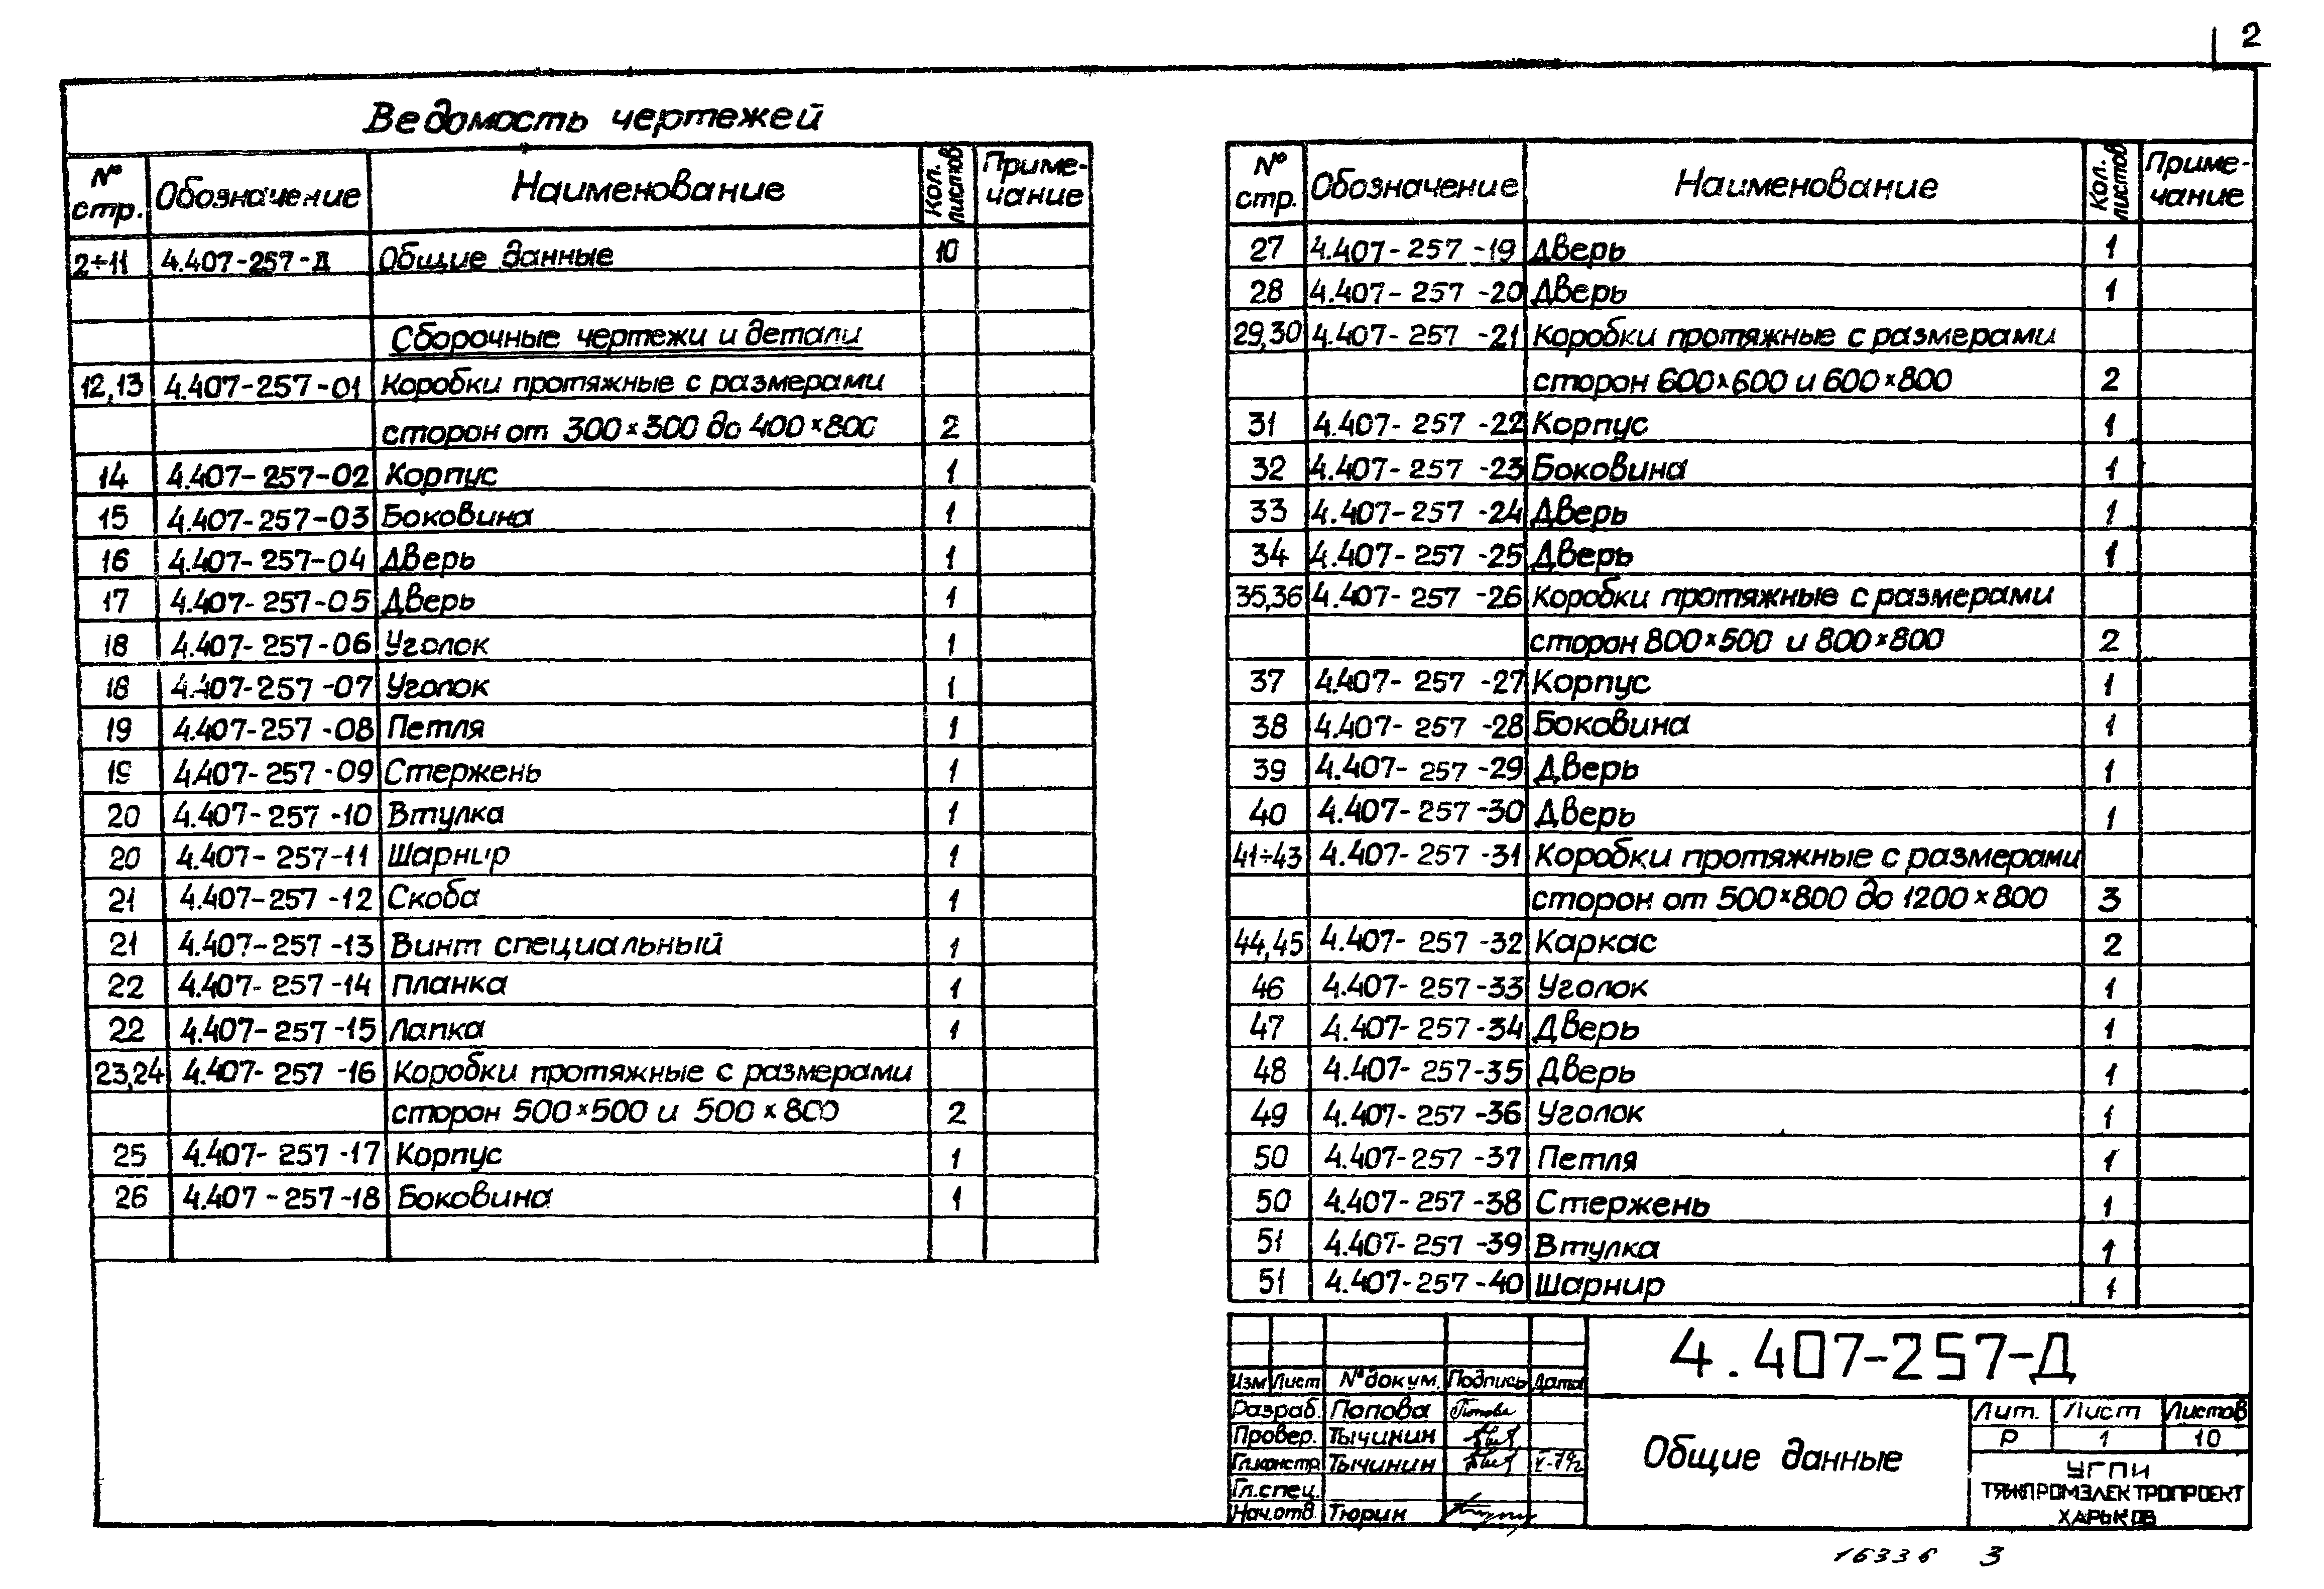 2
Ведомость чертежей
№ стр. Обозначение Наименование Кол. листов Примечание
2÷11 4.407-257-Д Общие данные 10
Сборочные чертежи и детали
12,13 4.407-257-01 Коробки протяжные с размерами
сторон от 300×300 до 400×800 2
14 4.407-257-02 Корпус 1
15 4.407-257-03 Боковина 1
16 4.407-257-04 Дверь 1
17 4.407-257-05 Дверь 1
18 4.407-257-06 Уголок 1
18 4.407-257-07 Уголок 1
19 4.407-257-08 Петля 1
19 4.407-257-09 Стержень 1
20 4.407-257-10 Втулка 1
20 4.407-257-11 Шарнир 1
21 4.407-257-12 Скоба 1
21 4.407-257-13 Винт специальный 1
22 4.407-257-14 Планка 1
22 4.407-257-15 Лапка 1
23,24 4.407-257-16 Коробки протяжные с размерами
сторон 500×500 и 500×800 2
25 4.407-257-17 Корпус 1
26 4.407-257-18 Боковина 1
№ стр. Обозначение Наименование Кол. листов Примечание
27 4.407-257-19 Дверь 1
28 4.407-257-20 Дверь 1
29,30 4.407-257-21 Коробки протяжные с размерами
сторон 600×600 и 600×800 2
31 4.407-257-22 Корпус 1
32 4.407-257-23 Боковина 1
33 4.407-257-24 Дверь 1
34 4.407-257-25 Дверь 1
35,36 4.407-257-26 Коробки протяжные с размерами
сторон 800×500 и 800×800 2
37 4.407-257-27 Корпус 1
38 4.407-257-28 Боковина 1
39 4.407-257-29 Дверь 1
40 4.407-257-30 Дверь 1
41÷43 4.407-257-31 Коробки протяжные с размерами
сторон от 500×800 до 1200×800 3
44,45 4.407-257-32 Каркас 2
46 4.407-257-33 Уголок 1
47 4.407-257-34 Дверь 1
48 4.407-257-35 Дверь 1
49 4.407-257-36 Уголок 1
50 4.407-257-37 Петля 1
50 4.407-257-38 Стержень 1
51 4.407-257-39 Втулка 1
51 4.407-257-40 Шарнир 1
4.407-257-Д
Изм Лист № докум. Подпись Дата
Разраб. Попова
Провер. Тычинин
Гл.констр. Тычинин V-79г
Гл.спец.
Нач.отд. Тюрин
Общие данные
Лит. Лист Листов
Р 1 10
УГПИ
ТЯЖПРОМЭЛЕКТРОПРОЕКТ
ХАРЬКОВ
16336 3